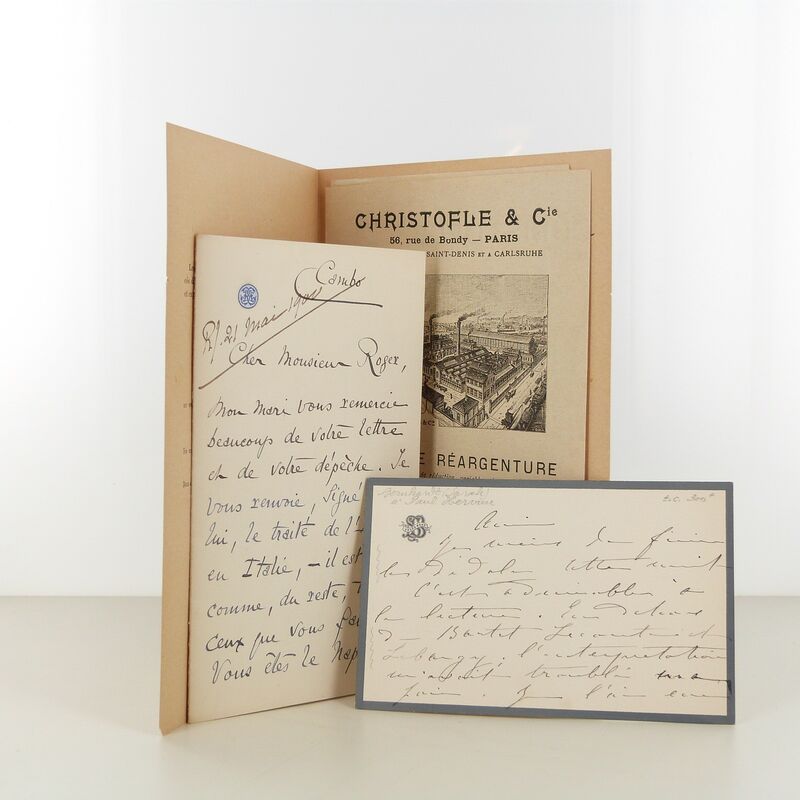 CHRISTOFLE & Cie
56, rue de Bondy — PARIS
SAINT-DENIS ET A CARLSRUHE
& Cie
RÉARGENTURE
Cambo
R/. 21 Mai 1901
Cher Monsieur Roger,
Mon mari vous remercie
beaucoup de votre lettre
et de votre dépêche. Je
vous renvoie, signé
lui, le traité de l'
en Italie, – il est
comme, du reste,
ceux que vous
Vous êtes le Nap
Bernhardt, Sarah
à Paul Hervieu
Ami
je viens de finir
le Dédale
C'est admirable à
la lecture. En dehors
Bartet
Lebargy l'interprétation
m'avait troublé ma
joie. Je l'ai